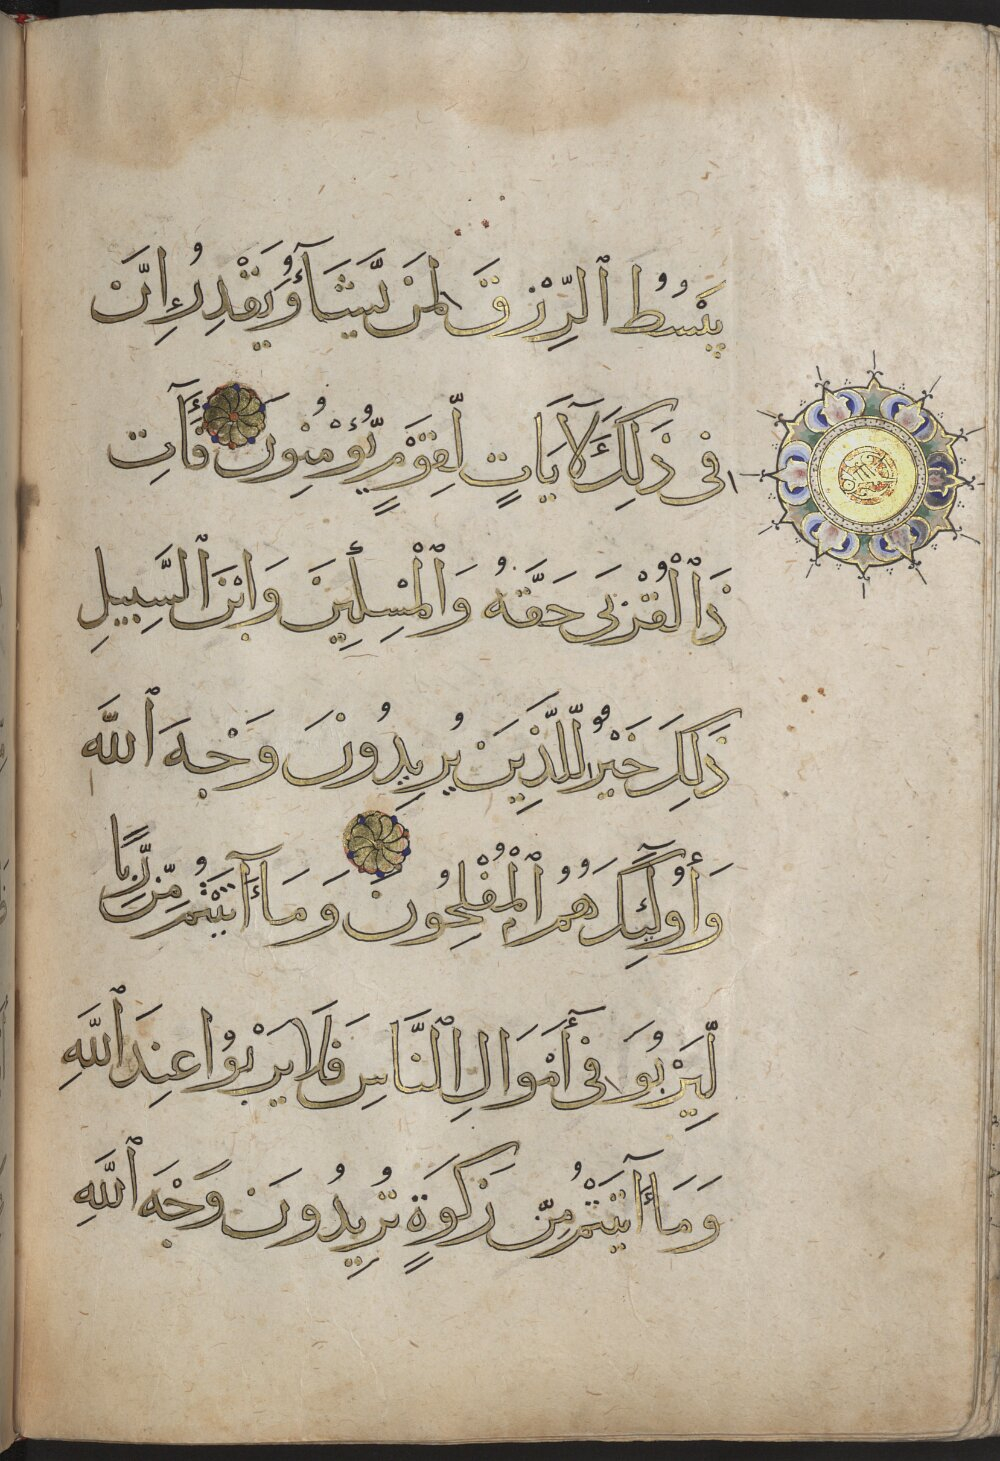 يَبْسُطُ ٱلرِّزْقَ لِمَن يَّشَآءُ وَيَقْدِرُ إِنَّ
فِى ذَلِكَ لَآيَاتٍ لِّقَوْمٍ يُّؤْمِنُونَ فَآتِ
ذَا ٱلْقُرْبَى حَقَّهُ وَٱلْمِسْكِينَ وَابْنَ ٱلسَّبِيلِ
ذَلِكَ خَيْرٌ لِّلَّذِينَ يُرِيدُونَ وَجْهَ ٱللَّه
وَأُولَٓئِكَ هُمُ ٱلْمُفْلِحُونَ وَمَآ آتَيْتُم مِّن رِّبًا
لِّيَرْبُوَ فِىٓ أَمْوَالِ ٱلنَّاسِ فَلَا يَرْبُوْا عِندَ ٱللَّهِ
وَمَآ آتَيْتُم مِّن زَكَوةٍ تُرِيدُونَ وَجْهَ ٱللَّهِ